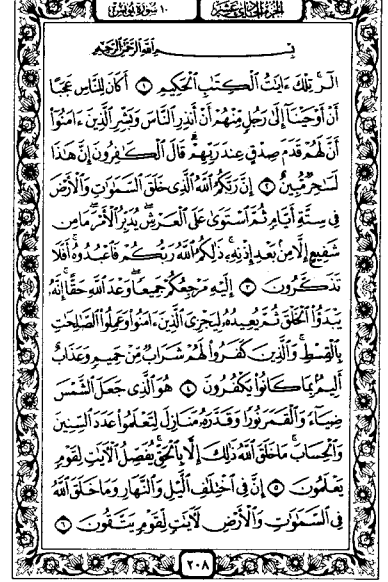 الجزء الحادي عشر
١٠ سورة يونس
بِسْمِ ٱللَّهِ ٱلرَّحْمَٰنِ ٱلرَّحِيمِ
الٓر ۚ تِلْكَ ءَايَٰتُ ٱلْكِتَٰبِ ٱلْحَكِيمِ ١ أَكَانَ لِلنَّاسِ عَجَبًا
أَنْ أَوْحَيْنَآ إِلَىٰ رَجُلٍ مِّنْهُمْ أَنْ أَنذِرِ ٱلنَّاسَ وَبَشِّرِ ٱلَّذِينَ ءَامَنُوٓا۟
أَنَّ لَهُمْ قَدَمَ صِدْقٍ عِندَ رَبِّهِمْ ۗ قَالَ ٱلْكَٰفِرُونَ إِنَّ هَٰذَا
لَسَٰحِرٌ مُّبِينٌ ٢ إِنَّ رَبَّكُمُ ٱللَّهُ ٱلَّذِى خَلَقَ ٱلسَّمَٰوَٰتِ وَٱلْأَرْضَ
فِى سِتَّةِ أَيَّامٍ ثُمَّ ٱسْتَوَىٰ عَلَى ٱلْعَرْشِ ۖ يُدَبِّرُ ٱلْأَمْرَ ۖ مَا مِن
شَفِيعٍ إِلَّا مِنۢ بَعْدِ إِذْنِهِۦ ۚ ذَٰلِكُمُ ٱللَّهُ رَبُّكُمْ فَٱعْبُدُوهُ ۚ أَفَلَا
تَذَكَّرُونَ ٣ إِلَيْهِ مَرْجِعُكُمْ جَمِيعًا ۖ وَعْدَ ٱللَّهِ حَقًّا ۚ إِنَّهُۥ
يَبْدَؤُا۟ ٱلْخَلْقَ ثُمَّ يُعِيدُهُۥ لِيَجْزِىَ ٱلَّذِينَ ءَامَنُوا۟ وَعَمِلُوا۟ ٱلصَّٰلِحَٰتِ
بِٱلْقِسْطِ ۚ وَٱلَّذِينَ كَفَرُوا۟ لَهُمْ شَرَابٌ مِّنْ حَمِيمٍ وَعَذَابٌ
أَلِيمٌۢ بِمَا كَانُوا۟ يَكْفُرُونَ ٤ هُوَ ٱلَّذِى جَعَلَ ٱلشَّمْسَ
ضِيَآءً وَٱلْقَمَرَ نُورًا وَقَدَّرَهُۥ مَنَازِلَ لِتَعْلَمُوا۟ عَدَدَ ٱلسِّنِينَ
وَٱلْحِسَابَ ۚ مَا خَلَقَ ٱللَّهُ ذَٰلِكَ إِلَّا بِٱلْحَقِّ ۚ يُفَصِّلُ ٱلْءَايَٰتِ لِقَوْمٍ
يَعْلَمُونَ ٥ إِنَّ فِى ٱخْتِلَٰفِ ٱلَّيْلِ وَٱلنَّهَارِ وَمَا خَلَقَ ٱللَّهُ
فِى ٱلسَّمَٰوَٰتِ وَٱلْأَرْضِ لَءَايَٰتٍ لِّقَوْمٍ يَتَّقُونَ ٦
٢٠٨